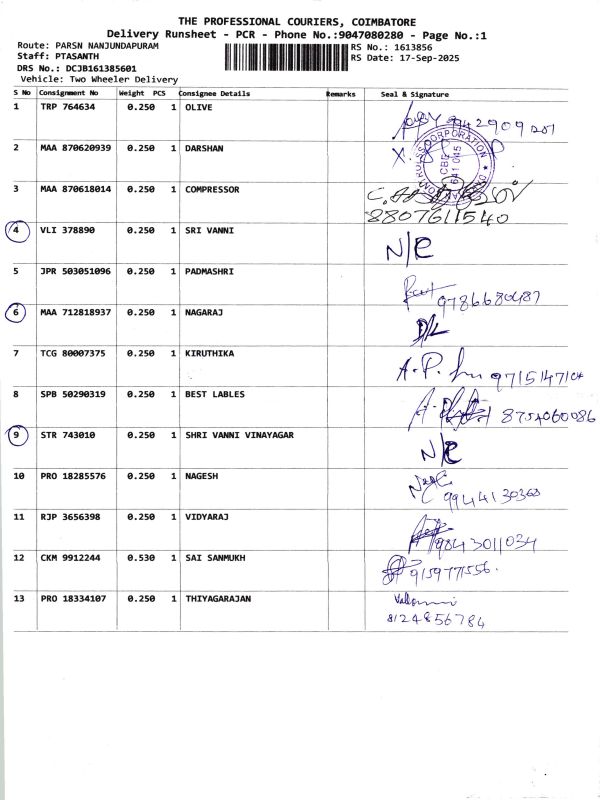 THE PROFESSIONAL COURIERS, COIMBATORE
Delivery Runsheet - PCR - Phone No.:9047080280 - Page No.:1
Route: PARSN NANJUNDAPURAM RS No.: 1613856
Staff: PTASANTH RS Date: 17-Sep-2025
DRS No.: DCJB161385601
Vehicle: Two Wheeler Delivery
S No Consignment No Weight PCS Consignee Details Remarks Seal & Signature
1 TRP 764634 0.250 1 OLIVE
2 MAA 870620939 0.250 1 DARSHAN
CORPORATION
CBE
641 045
3 MAA 870618014 0.250 1 COMPRESSOR
8807611540
4 VLI 378890 0.250 1 SRI VANNI N/R
5 JPR 503051096 0.250 1 PADMASHRI 9786680487
6 MAA 712818937 0.250 1 NAGARAJ D/L
7 TCG 80007375 0.250 1 KIRUTHIKA A.P.
8 SPB 50290319 0.250 1 BEST LABLES 8754060086
9 STR 743010 0.250 1 SHRI VANNI VINAYAGAR N/R
10 PRO 18285576 0.250 1 NAGESH
11 RJP 3656398 0.250 1 VIDYARAJ 9843011034
12 CKM 9912244 0.530 1 SAI SANMUKH 9159771556
13 PRO 18334107 0.250 1 THIYAGARAJAN
8124856784